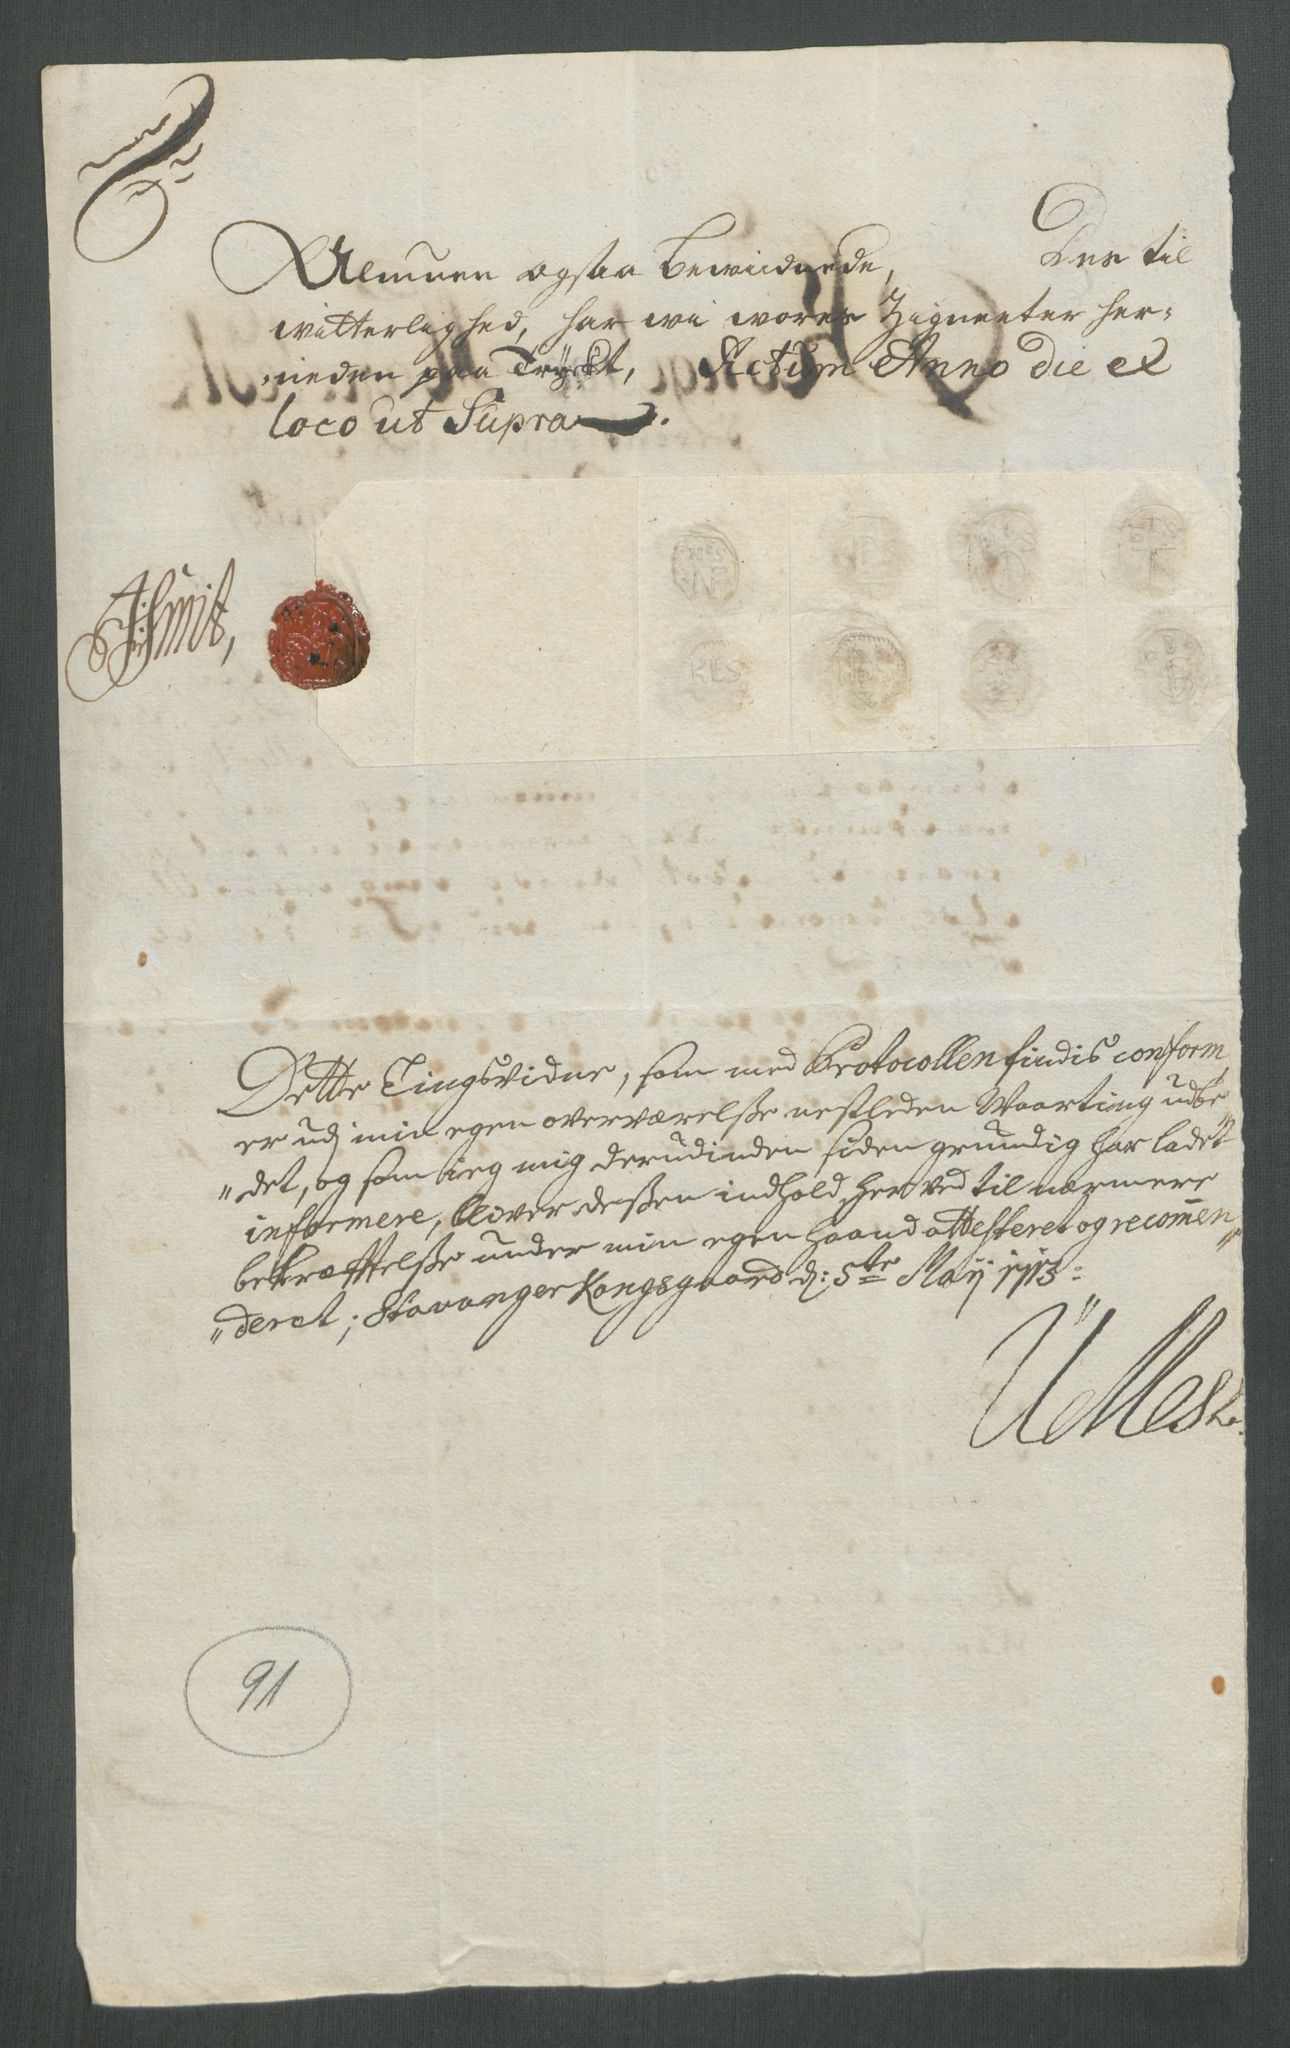 Almuen ogsaa bewiidnede, Des til
witterlighed, har wi wores Zigneeter her-
neden paa Trÿckt, Actum Anno die et
loco ut Supra.
JSmit,
NF
IPS
KLS
Dette Tingsvidne, som med Protocollen findis conform,
er udj min egen overværelse nestleden Waarting udste
"det, og som ieg mig derudinden siden grundig har ladet
informere, bliver dessen indhold herved til nærmere
bekræfftelse under min egen haand attesteret og recomen
"deret; Stavanger Kongsgaard d: 5te Maij 1713:
91